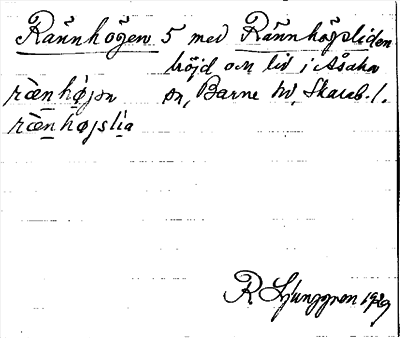 Rännhögen 5 med Rännhögsliden
höjd och lid i Åsaka
ræ̀n hø̀jən sn, Barne hd, Skarab. l.
ræ̀n højslìa
R Ljunggren 1929